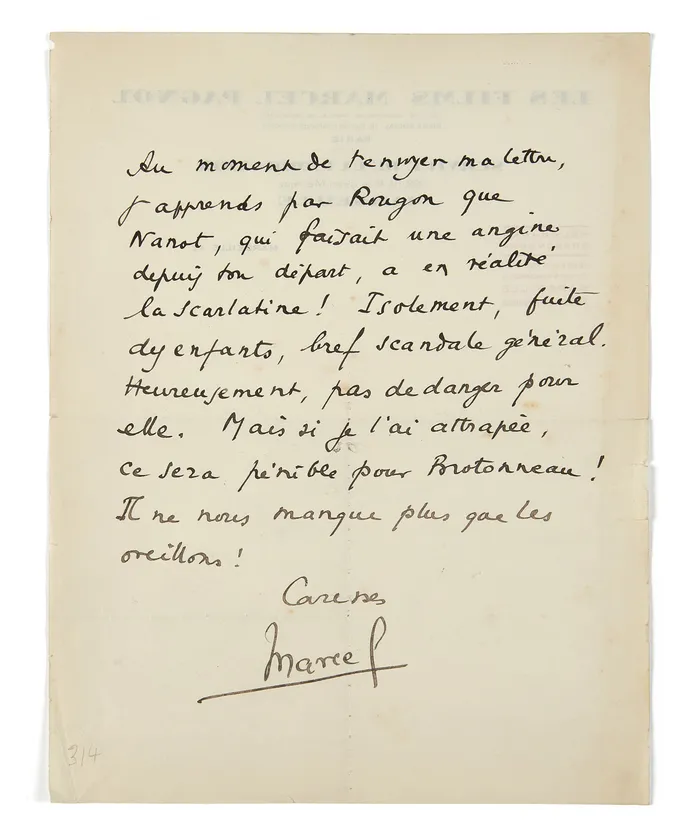 LES FILMS MARCEL PAGNOL
Au moment de t'envoyer ma lettre,
j'apprends par Rougon que
Nanot, qui faisait une angine
depuis ton départ, a en réalité
la scarlatine! Isolement, fuite
des enfants, bref scandale général.
Heureusement, pas de danger pour
elle. Mais si je l'ai attrapée,
ce sera pénible pour Brotonneau!
Il ne nous manque plus que les
oreillons!
Caresses
Marcel
314